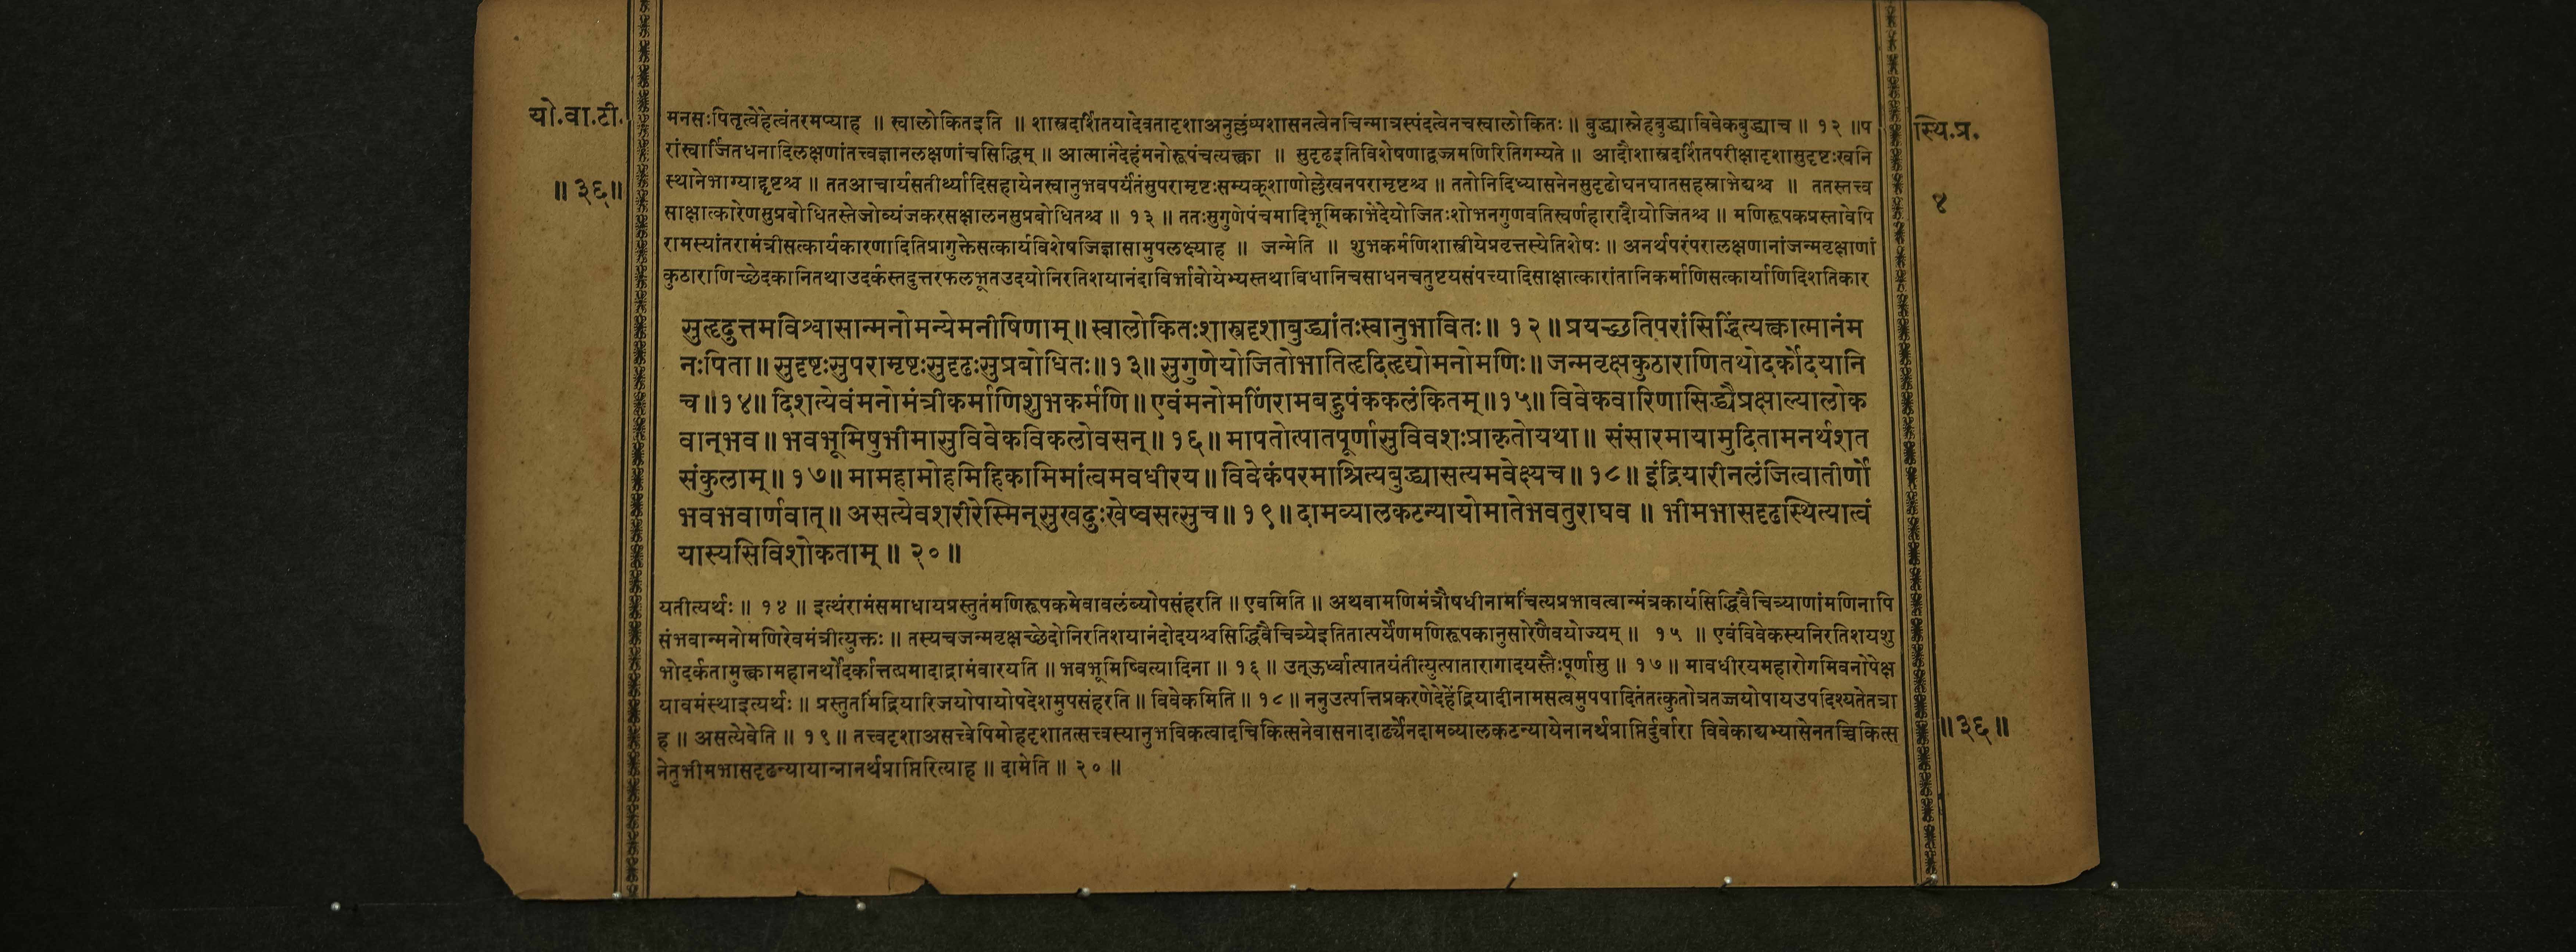 यो.वा.टी.
॥ ३६॥
स्थि.प्र.
४
मनसःपितृत्वेहेत्वंतरमप्याह ॥ स्वालोकितइति ॥ शास्त्रदर्शितयादेवतादृशाअनुल्लंघ्यशासनत्वेनचिन्मात्रस्पंदत्वेनचस्वालोकितः ॥ बुद्ध्यास्नेहबुद्ध्याविवेकबुद्ध्याच ॥ १२ ॥प
रांस्वार्जितधनादिलक्षणांतत्त्वज्ञानलक्षणांचसिद्धिम् ॥ आत्मानंदेहंमनोरूपंचत्यक्त्वा ॥ सुदृढइतिविशेषणाद्वज्रमणिरितिगम्यते ॥ आदौशास्त्रदर्शितपरीक्षादृशासुदृष्टःखनि
स्थानेभाग्याद्दृष्टश्च ॥ ततआचार्यसतीर्थ्यादिसहायेनस्वानुभवपर्यंतंसुपरामृष्टःसम्यक्शाणोल्लेखनपरामृष्टश्च ॥ ततोनिदिध्यासनेनसुदृढोघनघातसहस्राभेद्यश्च ॥ ततस्तत्त्व
साक्षात्कारेणसुप्रबोधितस्तेजोव्यंजकरसक्षालनसुप्रबोधितश्च ॥ १३ ॥ ततःसुगुणेपंचमादिभूमिकाभेदेयोजितःशोभनगुणवतिस्वर्णहारादौयोजितश्च ॥ मणिरूपकप्रस्तावेपि
रामस्यांतरामंत्रीसत्कार्यकारणादितिप्रागुक्तेसत्कार्यविशेषजिज्ञासामुपलक्ष्याह ॥ जन्मेति ॥ शुभकर्मणिशास्त्रीयेप्रवृत्तस्येतिशेषः ॥ अनर्थपरंपरालक्षणानांजन्मवृक्षाणां
कुठाराणिच्छेदकानितथाउदर्कस्तदुत्तरफलभूतउदयोनिरतिशयानंदाविर्भावोयेभ्यस्तथाविधानिचसाधनचतुष्टयसंपत्त्यादिसाक्षात्कारांतानिकर्माणिसत्कार्याणिदिशतिकार
सुहृदुत्तमविश्वासान्मनोमन्येमनीषिणाम् ॥ स्वालोकितःशास्त्रदृशाबुद्ध्यांतःस्वानुभावितः ॥ १२ ॥ प्रयच्छतिपरांसिद्धिंत्यक्त्वात्मानंम
नःपिता ॥ सुदृष्टःसुपरामृष्टःसुदृढःसुप्रबोधितः ॥१३॥ सुगुणेयोजितोभातिहृदिहृद्योमनोमणिः ॥ जन्मवृक्षकुठाराणितथोदर्कोदयानि
च ॥१४॥ दिशत्येवंमनोमंत्रीकर्माणिशुभकर्मणि ॥ एवंमनोमणिंरामबहुपंककलंकितम् ॥१५॥ विवेकवारिणासिद्ध्यैप्रक्षाल्यालोक
वान्भव ॥ भवभूमिषुभीमासुविवेकविकलोवसन् ॥ १६॥ मापतोत्पातपूर्णासुविवशःप्राकृतोयथा ॥ संसारमायामुदितामनर्थशत
संकुलाम् ॥ १७॥ मामहामोहमिहिकामिमांत्वमवधीरय ॥ विवेकंपरमाश्रित्यबुद्ध्यासत्यमवेक्ष्यच ॥ १८॥ इंद्रियारीनलंजित्वातीर्णो
भवभवार्णवात् ॥ असत्येवशरीरेस्मिन्सुखदुःखेष्वसत्सुच ॥ १९॥ दामव्यालकटन्यायोमातेभवतुराघव ॥ भीमभासदृढस्थित्यात्वं
यास्यसिविशोकताम् ॥ २० ॥
यतीत्यर्थः ॥ १४ ॥ इत्थंरामंसमाधायप्रस्तुतंमणिरूपकमेवावलंब्योपसंहरति ॥ एवमिति ॥ अथवामणिमंत्रौषधीनामचिंत्यप्रभावत्वान्मंत्रकार्यसिद्धिवैचित्र्याणांमणिनापि
संभवान्मनोमणिरेवमंत्रीत्युक्तः ॥ तस्यचजन्मवृक्षच्छेदोनिरतिशयानंदोदयश्चसिद्धिवैचित्र्येइतितात्पर्येणमणिरूपकानुसारेणैवयोज्यम् ॥ १५ ॥ एवंविवेकस्यनिरतिशयशु
भोदर्कतामुक्त्वामहानर्थोदर्कात्तत्प्रमादाद्रामंवारयति ॥ भवभूमिष्वित्यादिना ॥ १६ ॥ उत्ऊर्ध्वात्पातयंतीत्युत्पातारागादयस्तैःपूर्णासु ॥ १७ ॥ मावधीरयमहारोगमिवनोपेक्ष
यावमंस्थाइत्यर्थः ॥ प्रस्तुतमिंद्रियारिजयोपायोपदेशमुपसंहरति ॥ विवेकमिति ॥ १८ ॥ ननुउत्पत्तिप्रकरणेदेहेंद्रियादीनामसत्वमुपपादितंतत्कुतोत्रतज्जयोपायउपदिश्यतेतत्रा
ह ॥ असत्येवेति ॥ १९ ॥ तत्त्वदृशाअसत्त्वेपिमोहदृशातत्सत्त्वस्यानुभविकत्वादचिकित्सनेवासनादार्ढ्येनदामव्यालकटन्यायेनानर्थप्राप्तिर्दुर्वारा विवेकाद्यभ्यासेनतच्चिकित्स
नेतुभीमभासदृढन्यायान्नानर्थप्राप्तिरित्याह ॥ दामेति ॥ २० ॥
॥ ३६ ॥